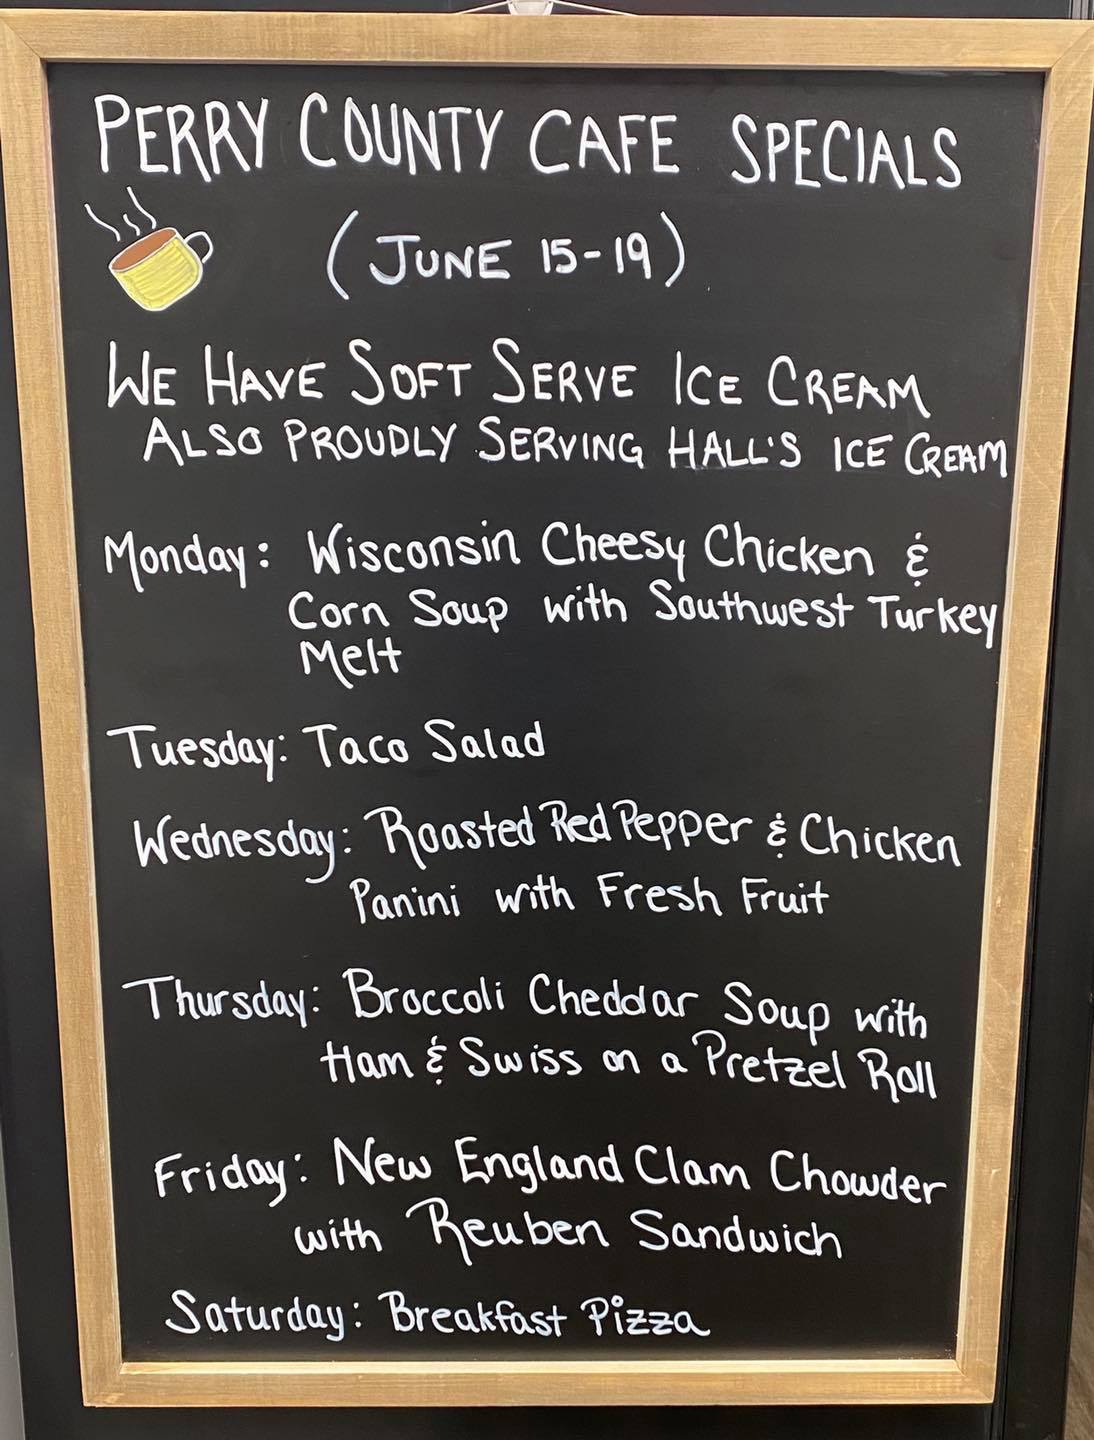 PERRY COUNTY CAFE SPECIALS
(JUNE 15-19)
WE HAVE SOFT SERVE ICE CREAM
ALSO PROUDLY SERVING HALL'S ICE CREAM
Monday: Wisconsin Cheesy Chicken &
Corn Soup with Southwest Turkey
Melt
Tuesday: Taco Salad
Wednesday: Roasted Red Pepper & Chicken
Panini with Fresh Fruit
Thursday: Broccoli Cheddar Soup with
Ham & Swiss on a Pretzel Roll
Friday: New England Clam Chowder
with Reuben Sandwich
Saturday: Breakfast Pizza